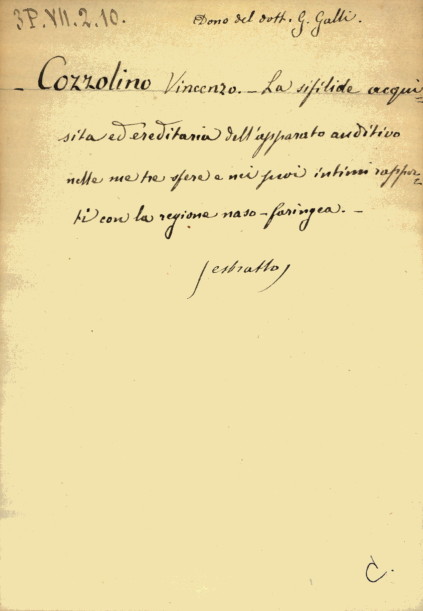 3P.VII.2.10. Dono del dott. G. Galli.
- Cozzolino Vincenzo. - La sifilide acqui-
sita ed ereditaria dell'apparato auditivo
nelle me tre sfere e nei suoi intimi rappor-
ti con la regione naso-faringea. -
(estratto)
C.